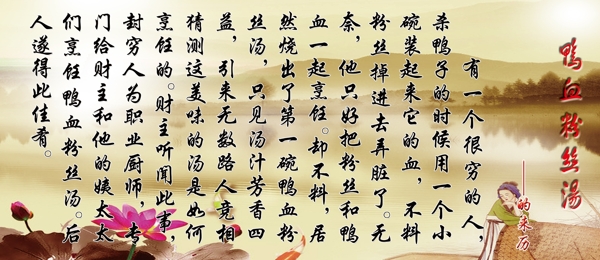 鸭血粉丝湯
——的来历
有一个很穷的人，
杀鸭子的时候用一个小
碗装起来它的血，不料
粉丝掉进去弄脏了。无
奈，他只好把粉丝和鸭
血一起烹饪。却不料，居
然烧出了第一碗鸭血粉
丝汤，只见汤汁芳香四
益，引来无数路人竞相
猜测这美味的汤是如何
烹饪的。财主听闻此事，
封穷人为职业厨师，专
门给财主和他的姨太太
们烹饪鸭血粉丝汤。后
人遂得此佳肴。